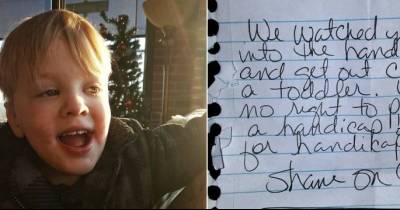 We watched y
into the hand
and get out c
a toddler.
no right to p
a handicap p
for handicap
Shame on